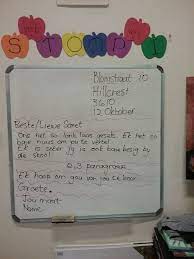 STOMPI
Blomstraat 10
Hillcrest
3610
12 Oktober
Beste/Liewe Samet
Ons het so lank laas gesels. Ek het so
baie nuus om vir te vertel.
Ek is seker jy is ook baie besig by
die skool.
2, 3 paragrawe
Ek hoop om gou van jou te hoor.
Groete.
Jou maat
Naam